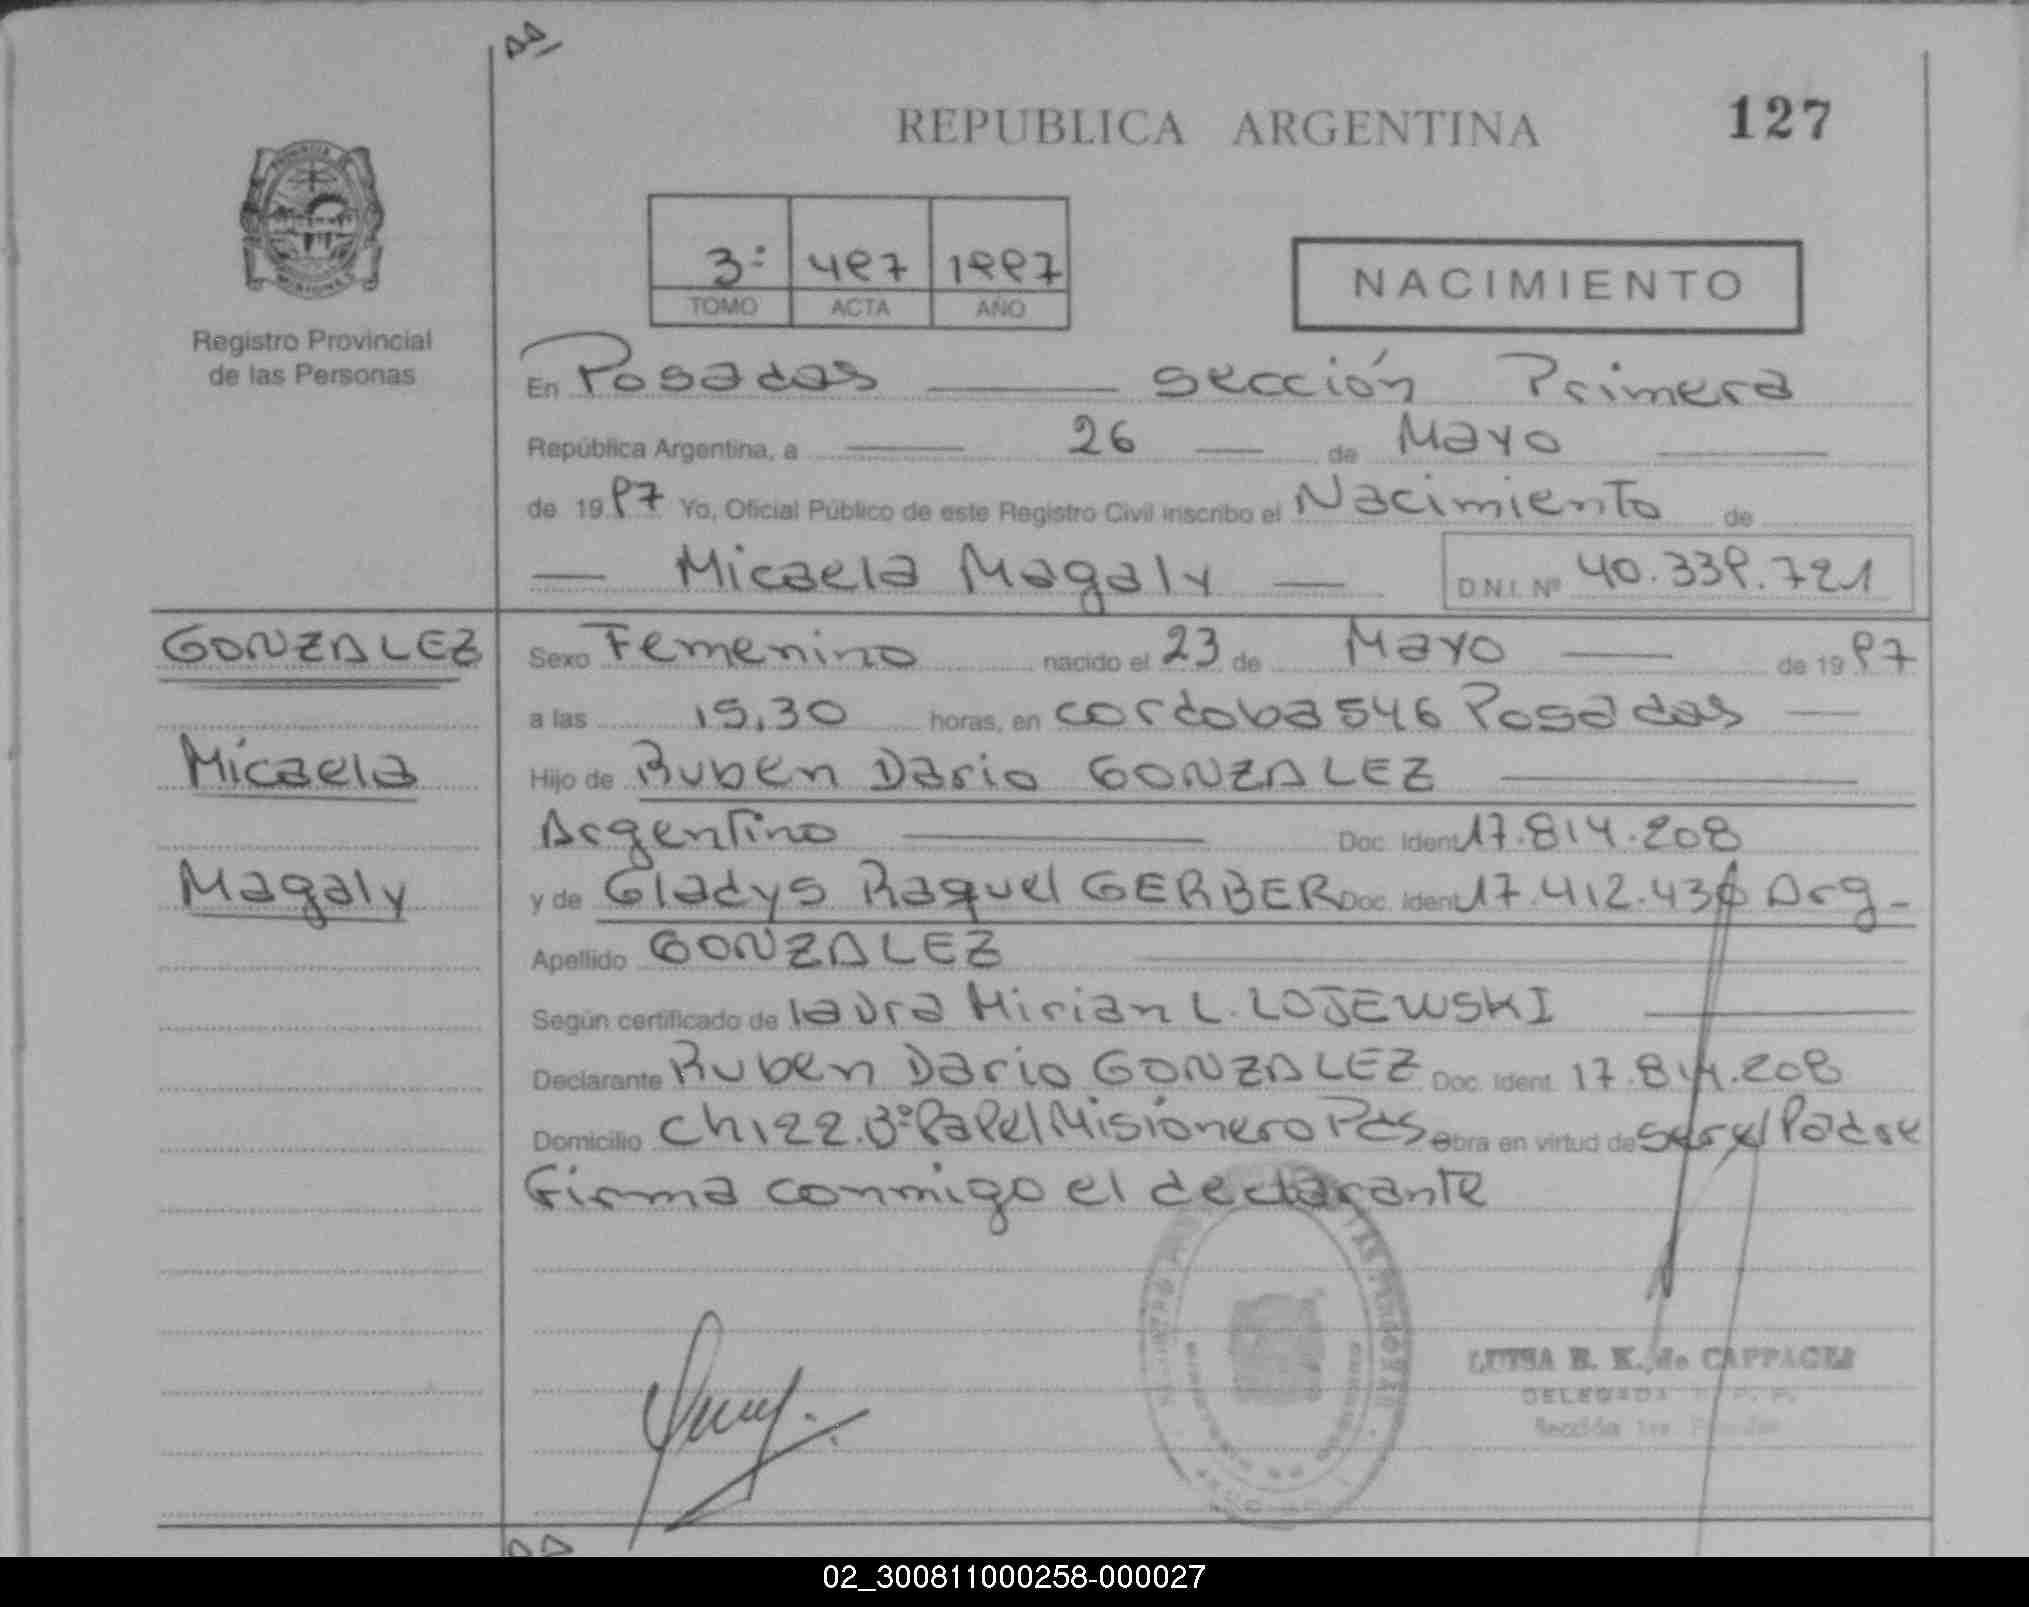 REPUBLICA ARGENTINA
127
Registro Provincial
de las Personas
3º 497 1997
TOMO ACTA AÑO
NACIMIENTO
En Posadas sección Primera
República Argentina, a 26 de Mayo
de 1997 Yo, Oficial Público de este Registro Civil inscribo el Nacimiento de
Micaela Magaly D.N.I. Nº 40.339.721
GONZALEZ
Micaela
Magaly
Sexo Femenino nacido el 23 de Mayo de 1997
a las 15,30 horas, en cordoba 546 Posadas
Hijo de Ruben Dario GONZALEZ
Argentino Doc. Ident. 17.814.208
y de Gladys Raquel GERBER Doc. Ident. 17.412.436 Arg-
Apellido GONZALEZ
Según certificado de laura Mirian L. LOJEWSKI
Declarante Ruben Dario GONZALEZ Doc. Ident. 17.814.208
Domicilio ch122.Bº Papel Misionero Pdas. Obra en virtud de ser el Padre
Firma conmigo el declarante
LUISA B. K. de
DELEGADA
Sección 1ra
02_300811000258-000027